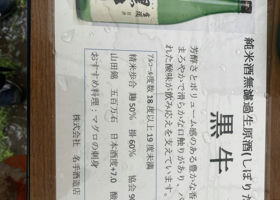 純米酒無濾過生原酒(しぼり
黒牛
芳醇さとボリューム感のある豊かな香
まろやかで滑らかな口触りがあり、バ
れた酸味が飲み応えを支えています。
アルコール度数 18度以上19度未満
精米歩合 麹50% 掛60% 協会9
山田錦 五百万石 日本酒度+7.0 酸
おすすめ料理:マグロの刺身
株式会社 名手酒造店